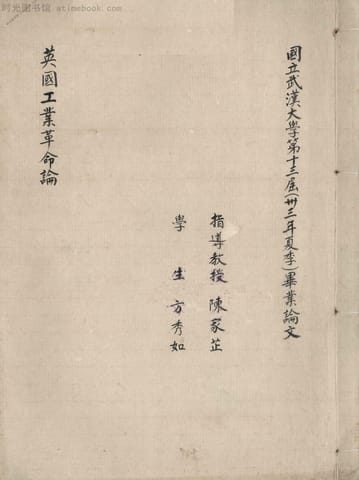 国立武漢大學第十三屆(卅三年夏季)畢業論文
指導教授 陳家芷
學生 方秀如
英國工業革命論
时光图书馆 - atimebook.com